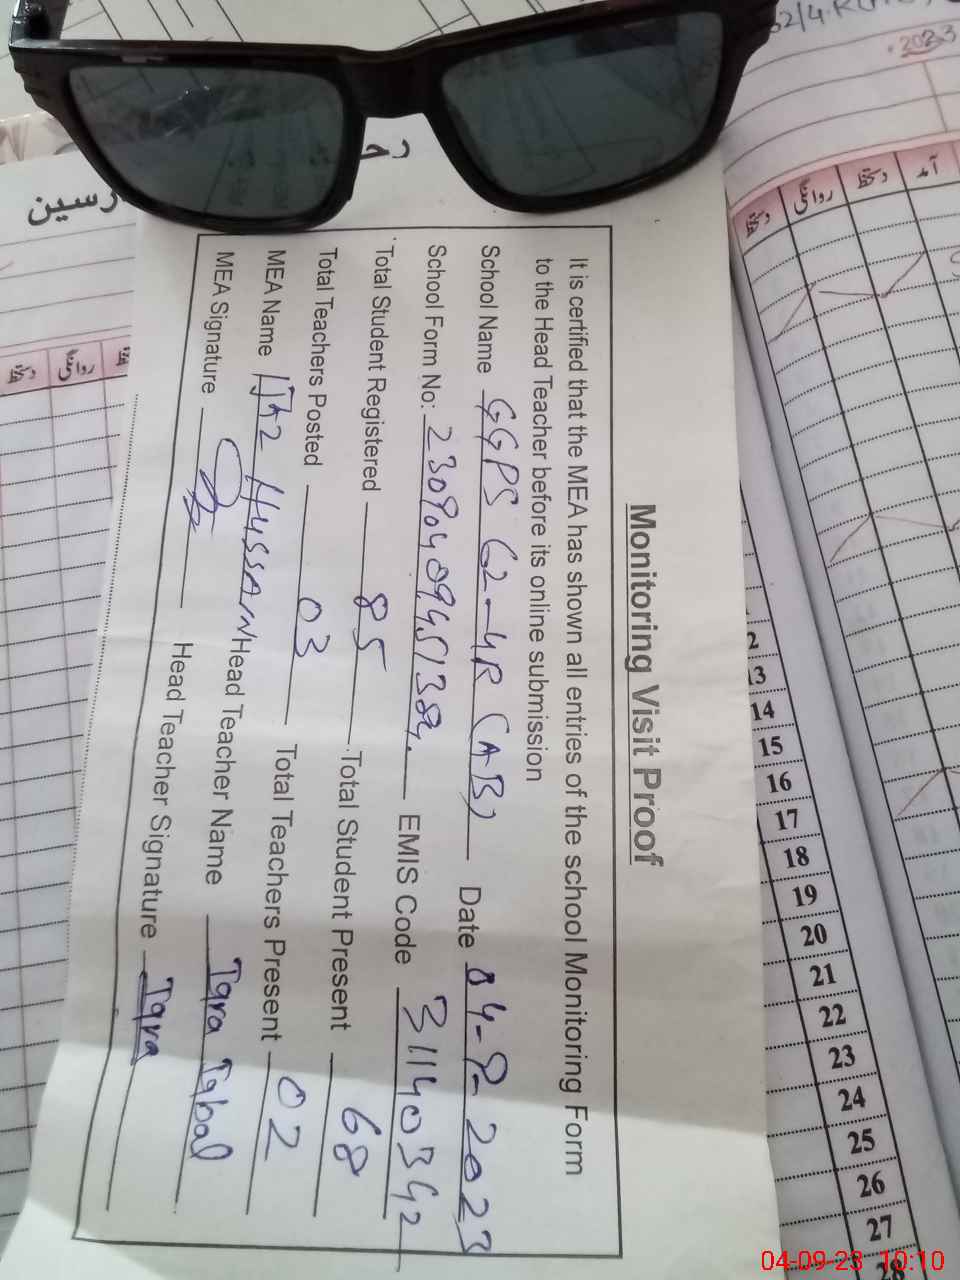 Monitoring Visit Proof
It is certified that the MEA has shown all entries of the school Monitoring Form
to the Head Teacher before its online submission
School Name GGPS 62-4R (AB) Date 04-9-2023
School Form No: EMIS Code
Total Student Registered 85 Total Student Present 68
Total Teachers Posted 03 Total Teachers Present 02
MEA Name Hussain Head Teacher Name Iqra Iqbal
MEA Signature Head Teacher Signature Iqra
2023
دستخط روانگی دستخط آمد
روانگی
13
14
15
16
17
18
19
20
21
22
23
24
25
26
27
28
04-09-23 10:10